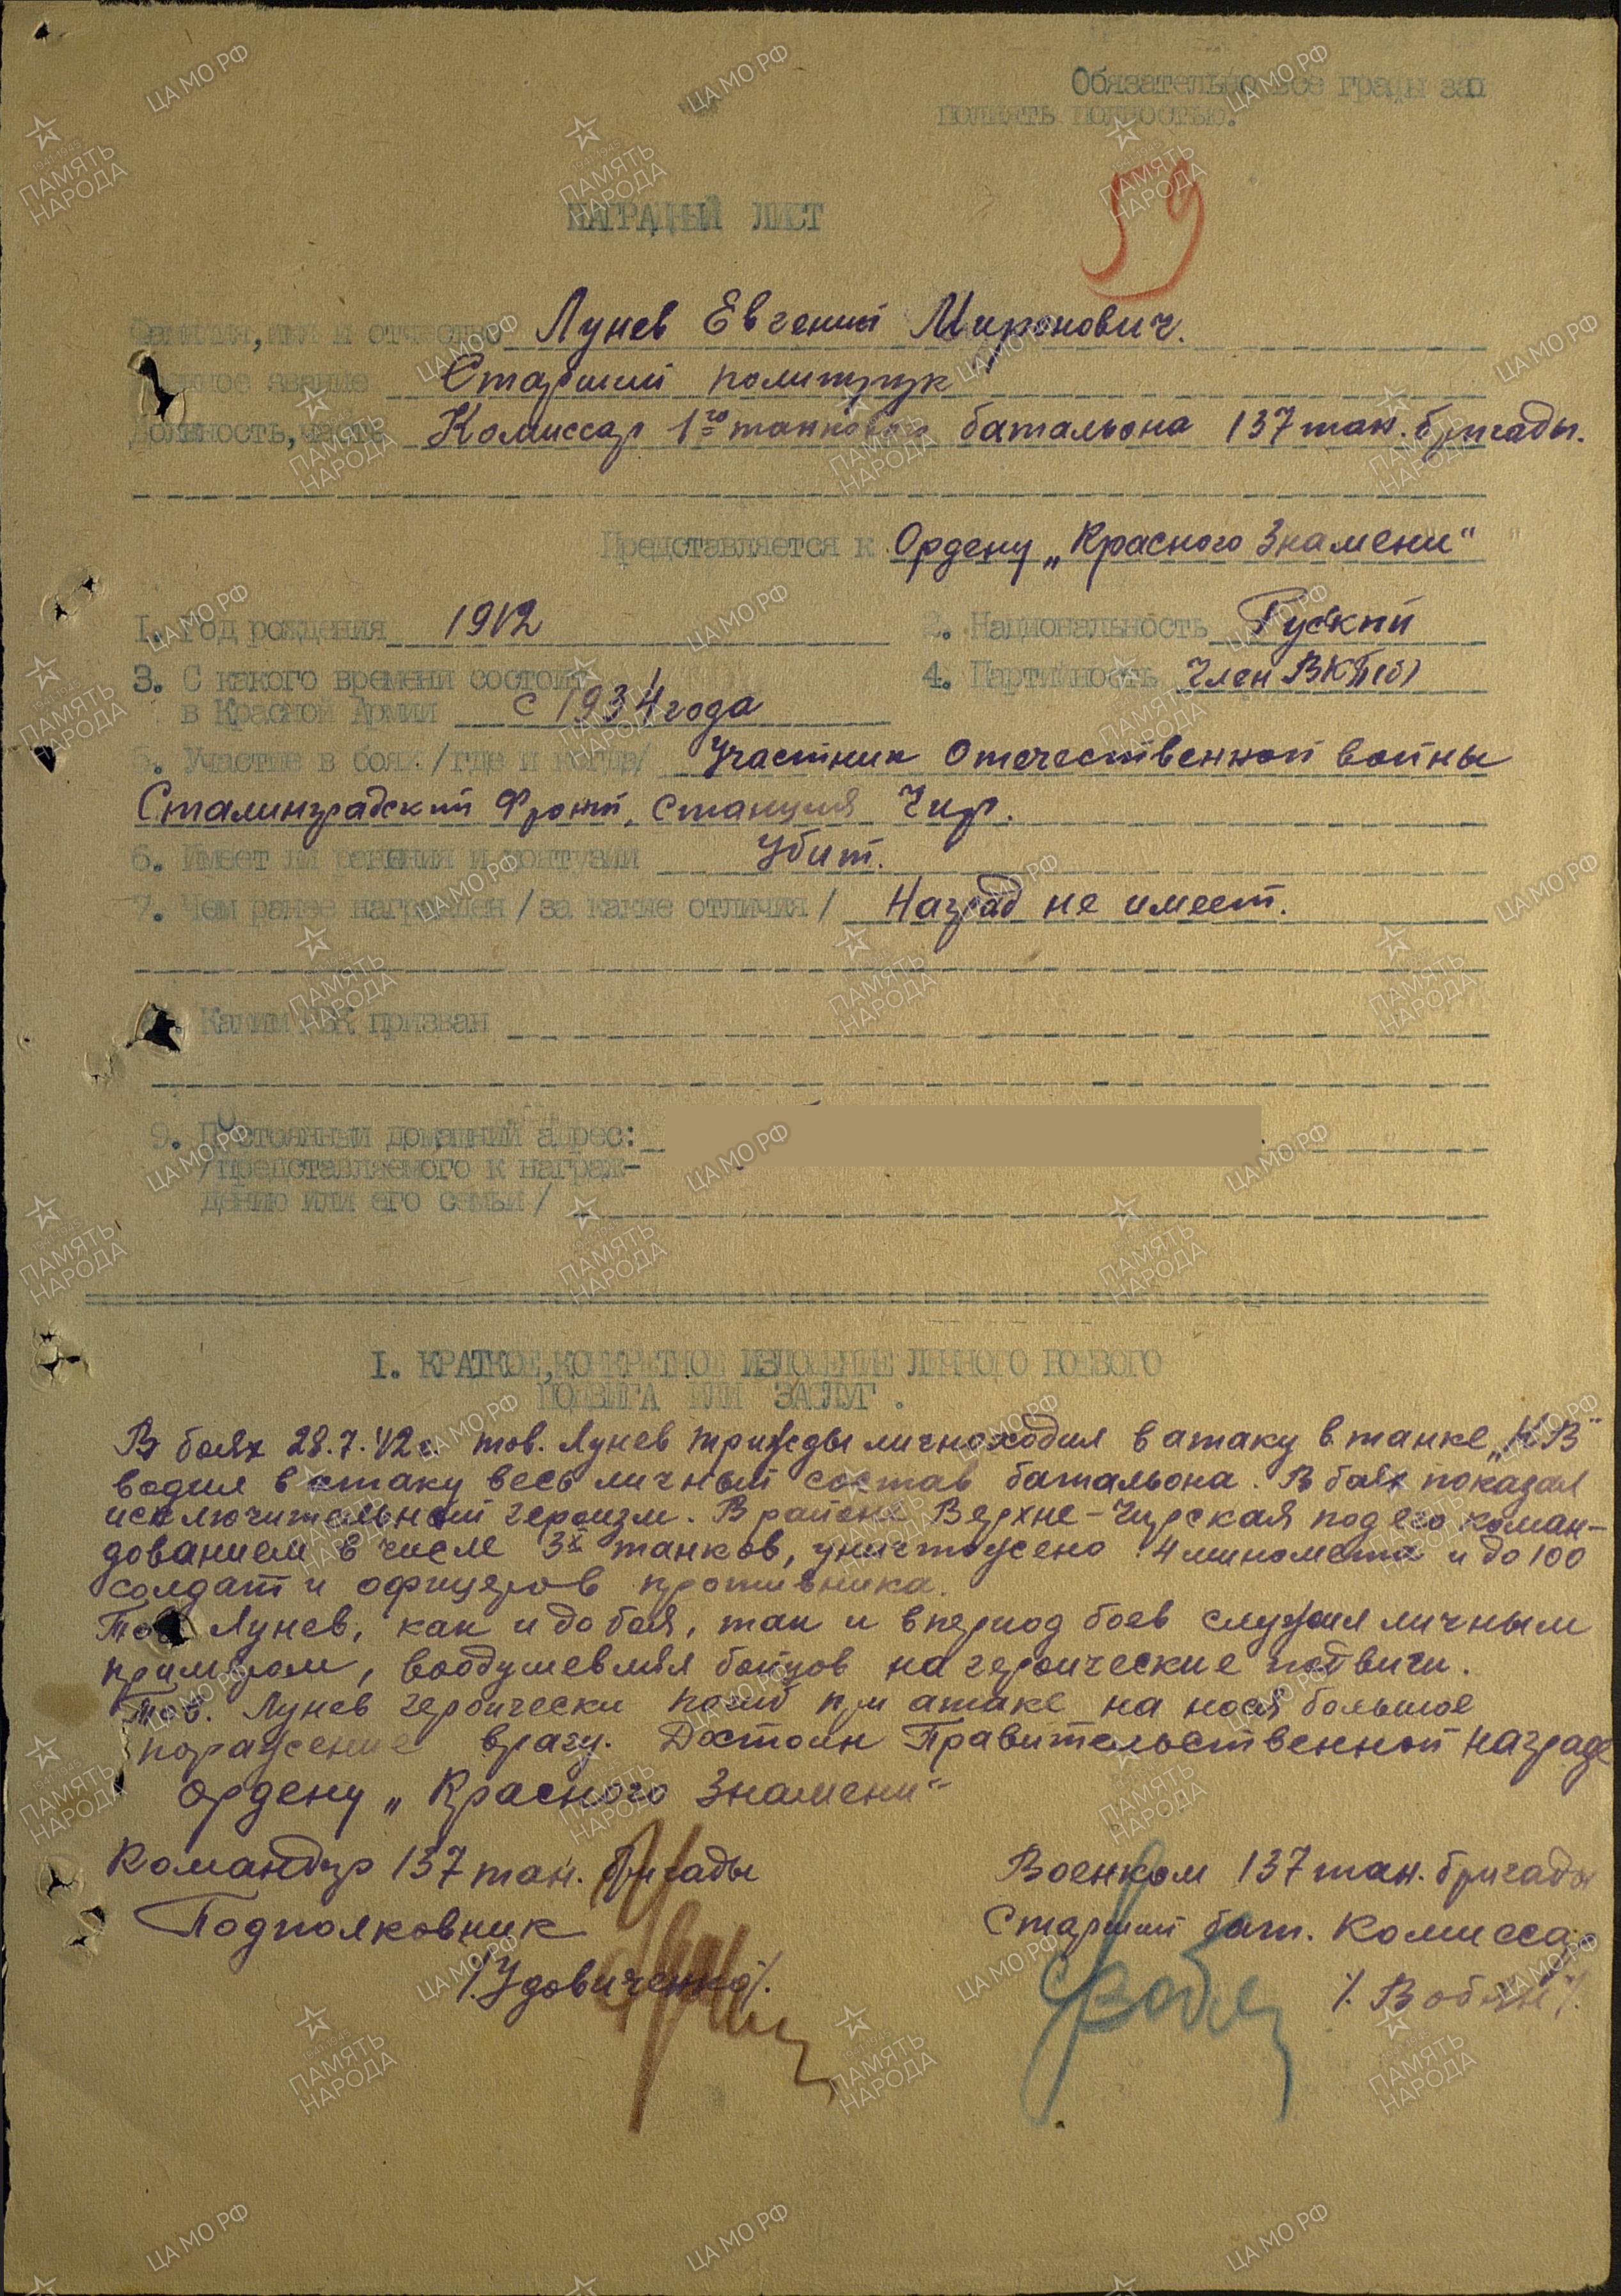 Обязательно все графы зап
полнять полностью.
59
НАГРАДНЫЙ ЛИСТ
Фамилия, имя и отчество Лунев Евгений Миронович.
звание Старший политрук
Должность, часть Комиссар 1го танкового батальона 137 тан. бригады.
Представляется к Ордену „Красного Знамени“
1. Год рождения 1912 2. Национальность Руский
3. С какого времени состоит
в Красной Армии с 1934 года
4. Партийность Член ВКП(б)
5. Участие в боях /где и когда/ Участник Отечественной войны
Сталинградский Фронт, станция Чир.
6. Имеет ли ранения и контузии Убит.
7. Чем ранее награжден /за какие отличия/ Наград не имеет.
8. Каким РВК призван
9. Постоянный домашний адрес:
/представляемого к награж-
дению или его семьи/
I. КРАТКОЕ, КОНКРЕТНОЕ ИЗЛОЖЕНИЕ ЛИЧНОГО БОЕВОГО
ПОДВИГА ИЛИ ЗАСЛУГ.
В боях 28.7.42г. тов. Лунев трижды лично ходил в атаку в танке „КВ“
водил в атаку весь личный состав батальона. В боях показал
исключительный героизм. В районе Верхне-Чирская под его коман-
дованием в числе 3х танков, уничтожено 4 миномета и до 100
солдат и офицеров противника.
Тов. Лунев, как и до боя, так и в период боев служил личным
примером, воодушевлял бойцов на героические подвиги.
Тов. Лунев героически погиб при атаке нанося большое
поражение врагу. Достоин Правительственной награде
ордену „Красного Знамени“
Командир 137 тан. бригады
Подполковник
/.Удовиченко/.
Военком 137 тан. бригады
Старший бат. Комиссар
/. Вобян /.
ПАМЯТЬ НАРОДА
1941-1945
ЦА МО РФ